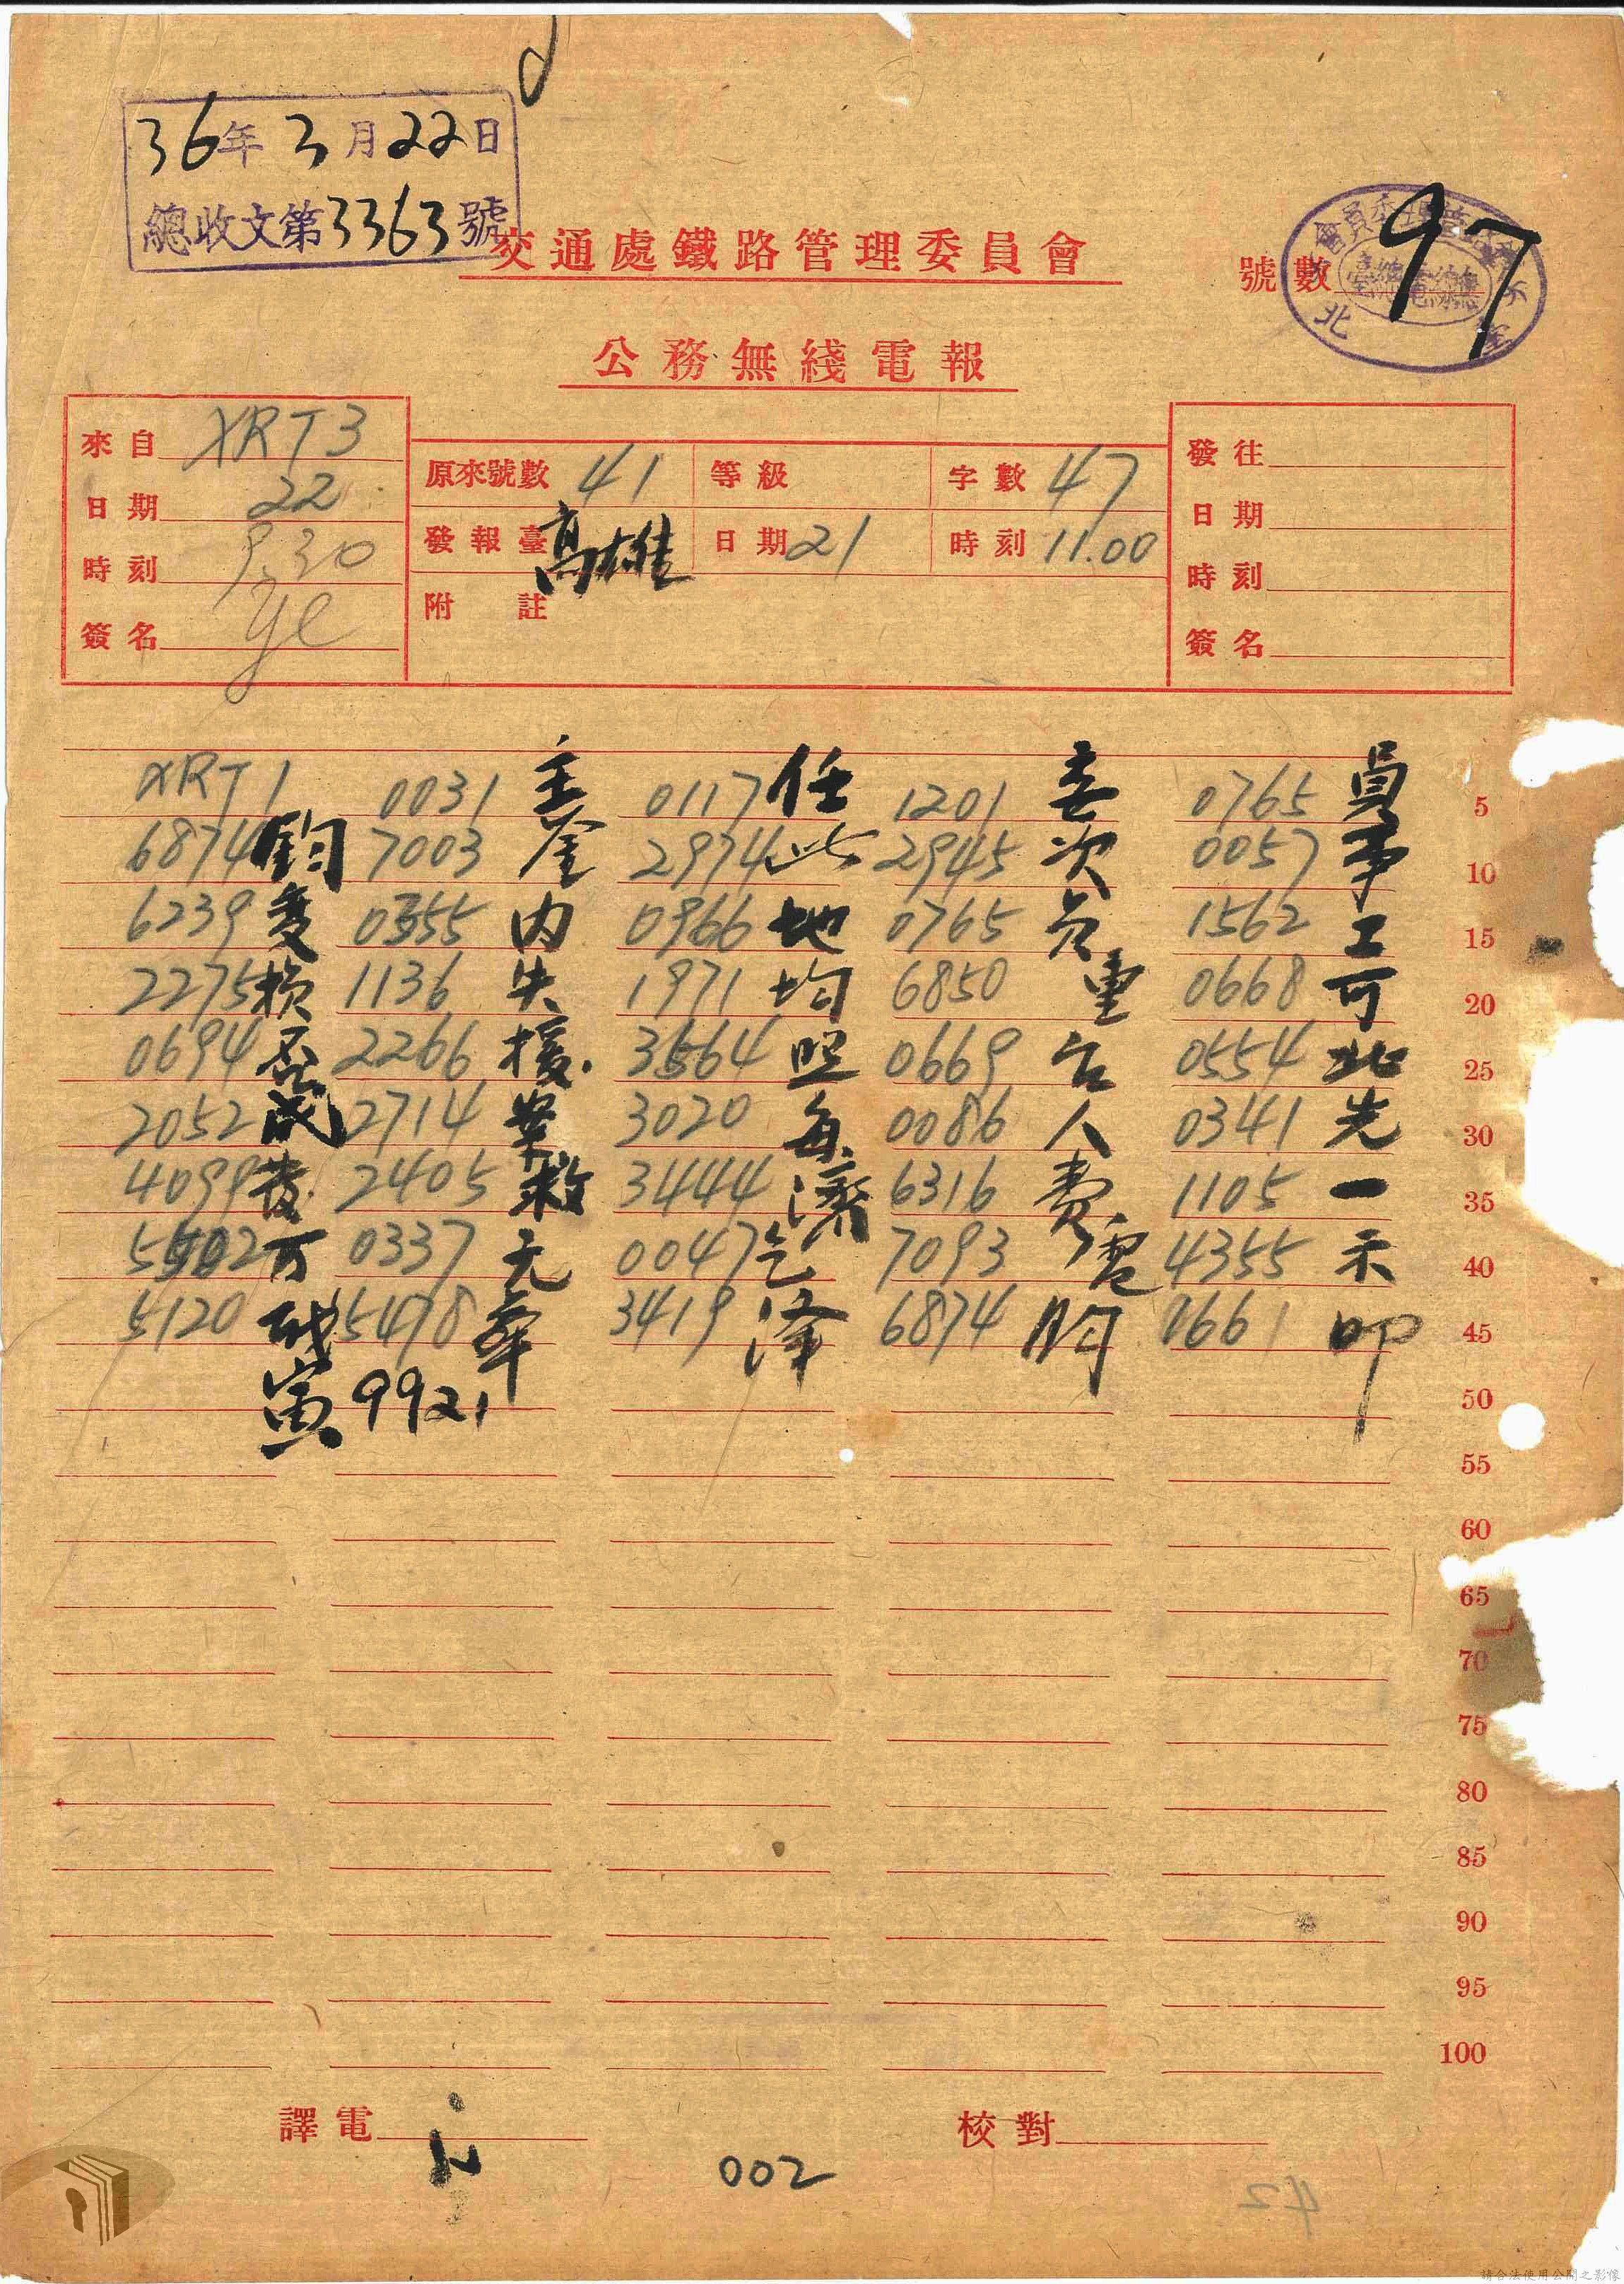 36年3月22日
總收文第3363號
交通處鐵路管理委員會
號數 97
公務無綫電報
來自 XRT3
日期 22
時刻 9.30
簽名 ye
原來號數 41 等級 字數 47
發報臺 高雄 日期 21 時刻 11.00
附註
發往
日期
時刻
簽名
XRT1 0031 主 0117 任 1201 委 0765 員 5
6874 鈞 7003 鉴 2974 此 2945 次 0057 事 10
6239 变 0355 内 0966 地 0765 员 1562 工 15
2275 损 1136 失 1971 均 6850 重 0668 可 20
0694 否 2266 援 3564 照 0669 台 0554 北 25
2052 成 2714 案 3020 每 0086 人 0341 先 30
4099 发 2405 救 3444 濟 6316 费 1105 一 35
5502 万 0337 元 0047 乞 7093 電 4355 示 40
5120 职 5478 華 3419 澤 6874 鈞 0661 叩 45
寅 9921 50
55
60
65
70
75
80
85
90
95
100
譯電
校對
002
42
請合法使用公開之影像